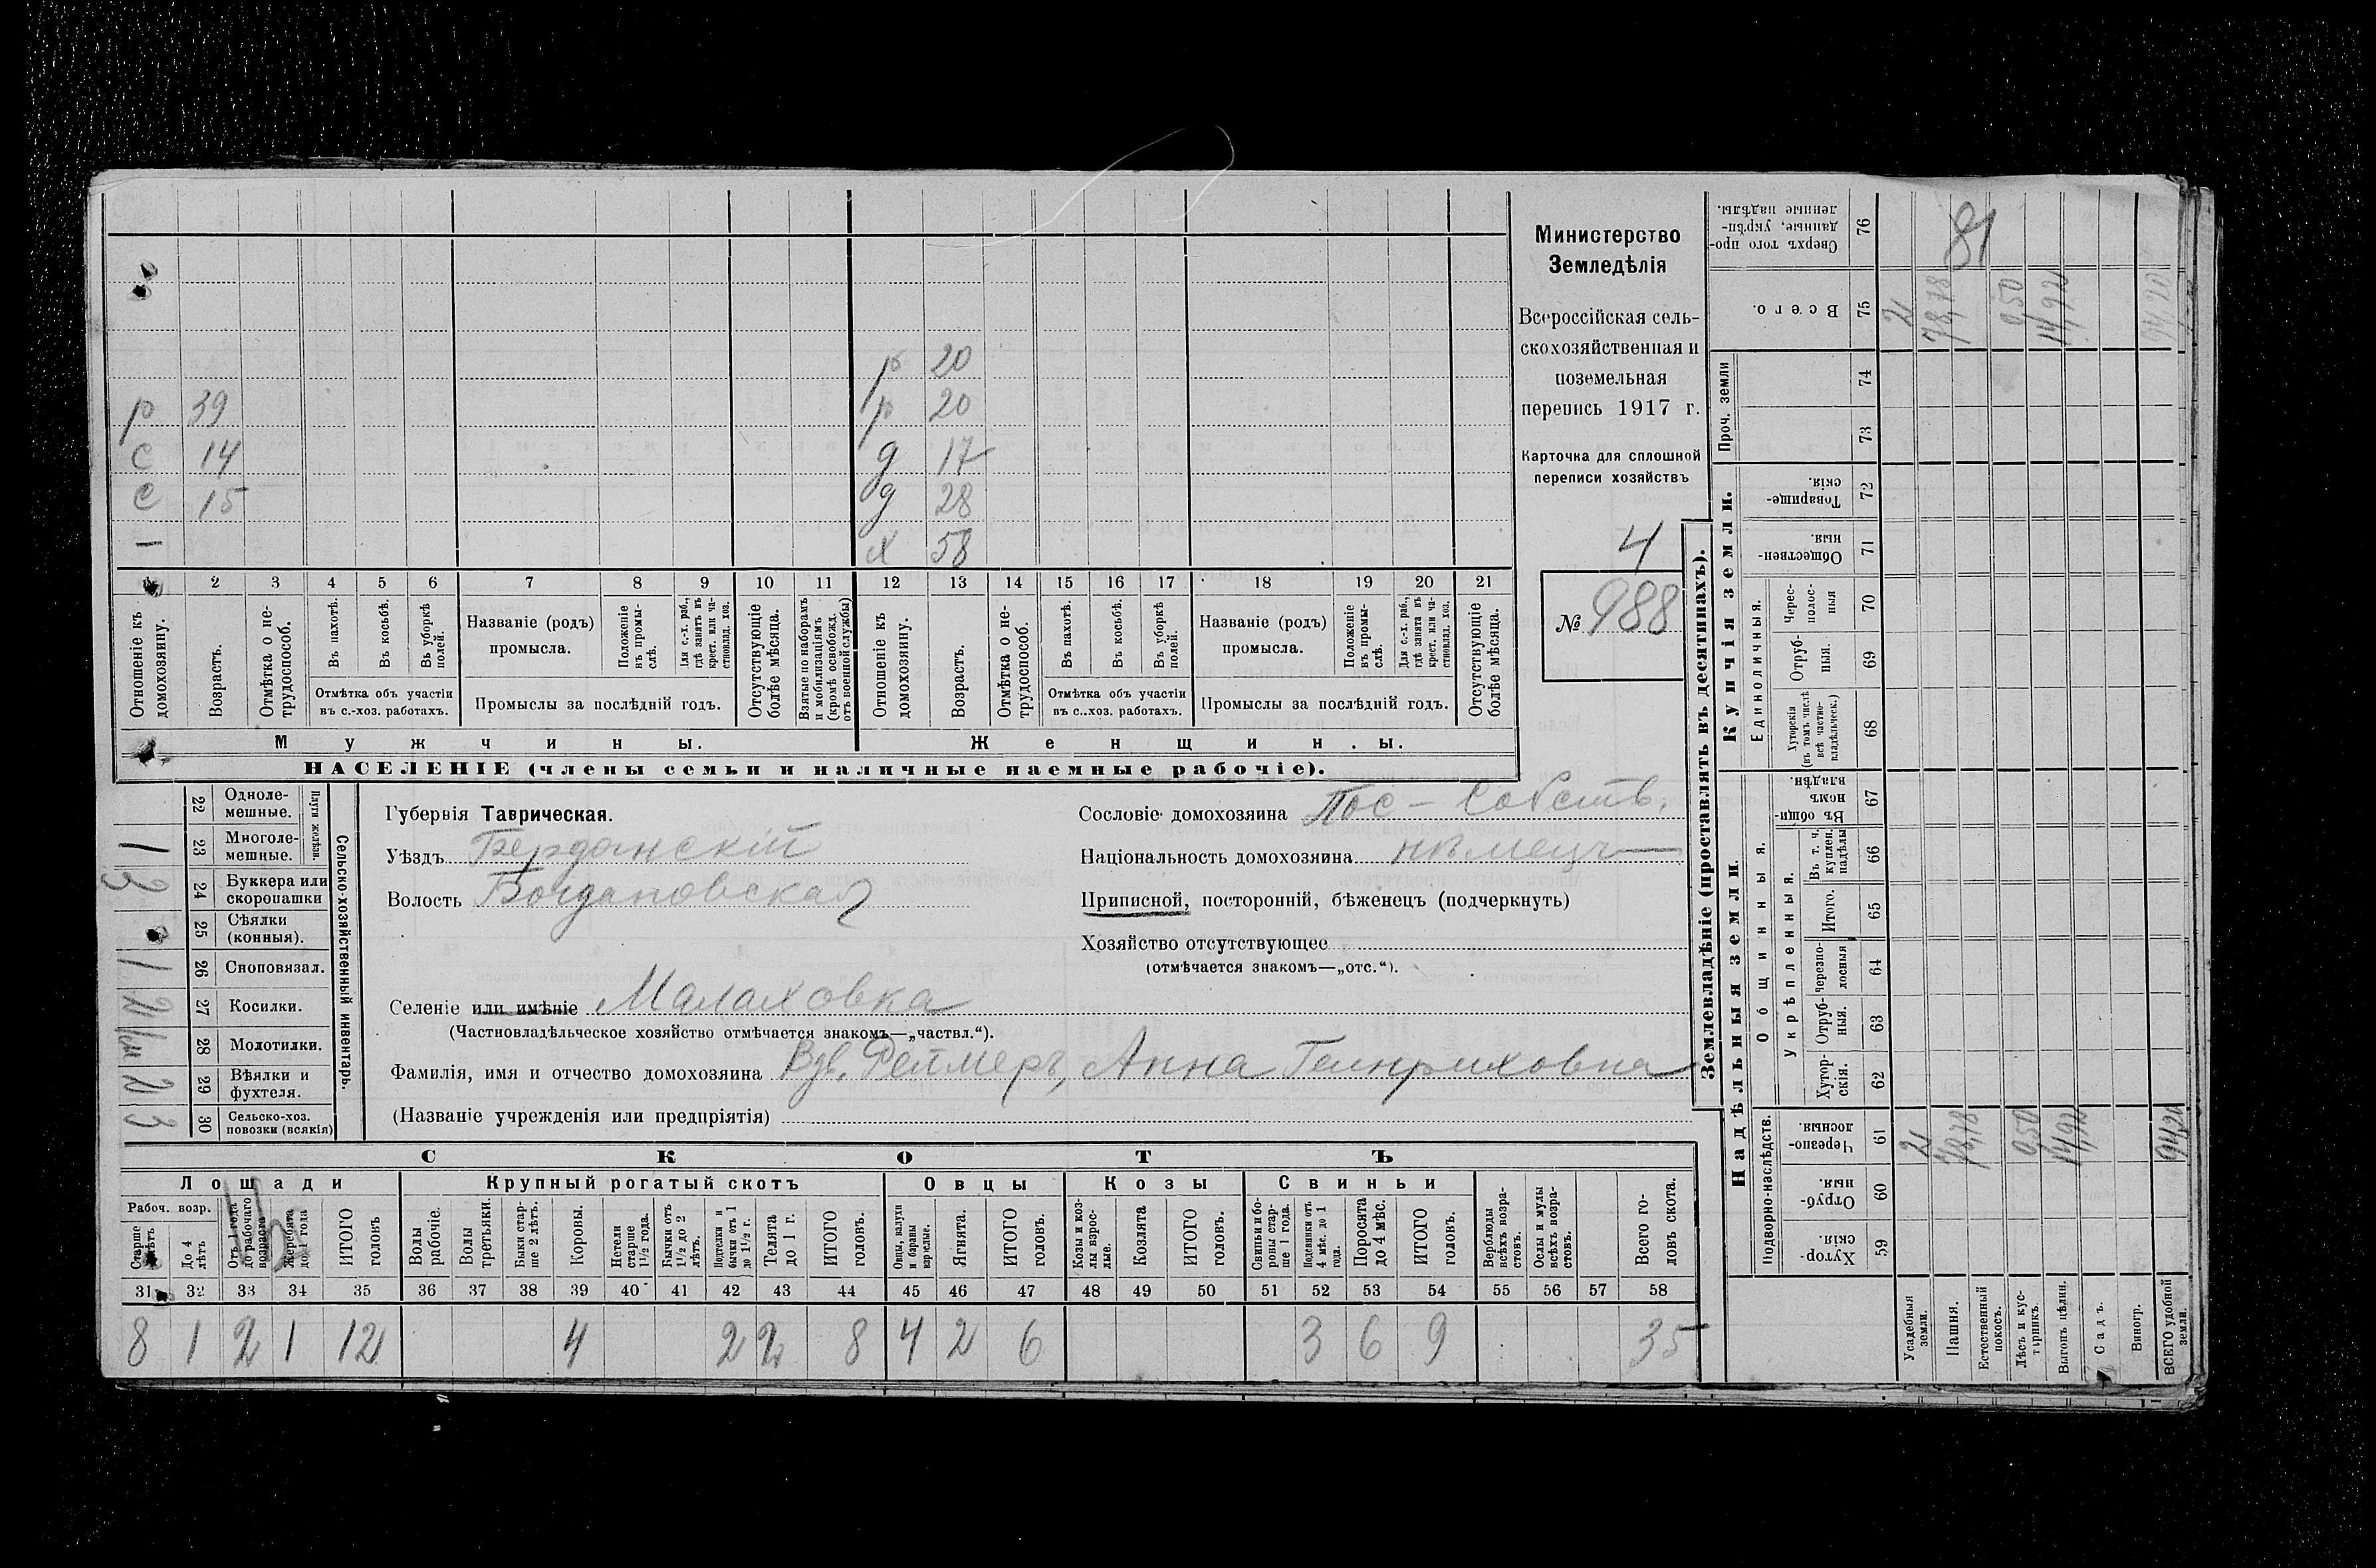 р 20
р 39 р 20
с 14 д 17
с 15 д 28
1 х 58
1 2 3 4 5 6 7 8 9 10 11 12 13 14 15 16 17 18 19 20 21
Отношеніе къ домохозяину.
Возрастъ.
Отмѣтка о не-
трудоспособ.
Въ пахотѣ.
Въ косьбѣ.
Въ уборкѣ
полей.
Отмѣтка объ участіи
въ с.-хоз. работахъ.
Названіе (родъ)
промысла.
Положеніе
въ промы-
слѣ.
Для с.-х. раб.,
гдѣ занятъ въ
крест. или ча-
стновлад. хоз.
Промыслы за послѣдній годъ.
Отсутствующіе
болѣе мѣсяца.
Взятые по наборамъ
и мобилизаціямъ
(кромѣ освобожд.
отъ военной службы)
Отношеніе къ
домохозяину.
Возрастъ.
Отмѣтка о не-
трудоспособ.
Въ пахотѣ.
Въ косьбѣ.
Въ уборкѣ
полей.
Отмѣтка объ участіи
въ с..хоз. работахъ.
Названіе (родъ)
промысла.
Положеніе
въ промы-
слѣ.
Для с.-х. раб.,
гдѣ занята въ
крест. или ча-
стновлад. хоз.
Промыслы за послѣдній годъ.
Отсутствующіе
болѣе мѣсяца.
Мужчины.
Женщины.
НАСЕЛЕНІЕ (члены семьи и наличные наемные рабочіе).
Министерство
Земледѣлія
Всероссійская сель-
скохозяйственная и
поземельная
перепись 1917 г.
Карточка для сплошной
переписи хозяйствъ
4
№ 988
Сельско-хозяйственный инвентарь.
Плуги желѣзн.
22 Одноле-
мешные.
1 23 Многоле-
мешные.
3 24 Буккера или
скоропашки
25 Сѣялки
(конныя).
1 26 Сноповязал.
27 Косилки.
28 Молотилки.
2 29 Вѣялки и
фухтеля.
3 30 Сельско-хоз.
повозки (всякія)
Губернія Таврическая.
Уѣздъ Бердянскій
Волость Богдановская
Селеніе или имѣніе Малаховка
(Частновладѣльческое хозяйство отмѣчается знакомъ—„частвл.“).
Фамилія, имя и отчество домохозяина Вдв. Реймеръ, Анна Генриховна
(Названіе учрежденія или предпріятія)
Сословіе домохозяина Пос-Собств.
Національность домохозяина нѣмецъ
Приписной, посторонній, бѣженецъ (подчеркнуть)
Хозяйство отсутствующее
(отмѣчается знакомъ—„отс.“).
СКОТЪ
Лошади Крупный рогатый скотъ Овцы Козы Свиньи
Рабоч. возр.
Старше
4 лѣтъ
До 4
лѣтъ
Отъ 1 года
до рабочаго
возраста
Жеребята
до 1 года
ИТОГО
головъ
Волы
рабочіе.
Волы
третьяки.
Быки стар-
ше 2 лѣтъ.
Коровы.
Нетели
старше
1½ года.
Бычки отъ
1½ до 2
лѣтъ.
Подтелки и
бычки отъ 1
до 1½ г.
Телята
до 1 г.
ИТОГО
головъ.
Овцы, валухи
и бараны
взрослые.
Ягнята.
ИТОГО
головъ.
Козы и коз-
лы взрос-
лые.
Козлята
ИТОГО
головъ.
Свиньи и бо-
ровы стар-
ше 1 года.
Подсвинки отъ
4 мѣс. до 1
года.
Поросята
до 4 мѣс.
ИТОГО
головъ.
Верблюды
всѣхъ возра-
стовъ.
Ослы и мулы
всѣхъ возра-
стовъ.
Всего го-
ловъ скота.
31 32 33 34 35 36 37 38 39 40 41 42 43 44 45 46 47 48 49 50 51 52 53 54 55 56 57 58
8 1 2 1 12 4 2 2 8 4 2 6 3 6 9 35
Землевладѣніе (проставлять въ десятинахъ).
Надѣльныя земли.
Купчія земли.
Подворно-наслѣдств.
Общинныя.
Укрѣпленныя.
Единоличныя.
Проч. земли
Хутор-
скія. 59
Отруб-
ныя. 60
Черезпо-
лосныя. 61
Хутор-
скія. 62
Отруб-
ныя. 63
Черезпо-
лосныя 64
Итого. 65
Въ т. ч.
куплен.
надѣлы 66
Въ общин-
номъ
владѣн. 67
Хуторскія
(въ томъ числѣ
всѣ частно-
владѣльческ.) 68
Отруб-
ныя. 69
Черес-
полос-
ныя 70
Обществен-
ныя. 71
Товарище-
скія. 72
73
74
Всего. 75
Сверхъ того про-
данные, укрѣп-
ленные надѣлы. 76
81
Усадебныя
земли. 2 2
Пашня. 78,78 78,78
Естественный
покосъ.
Лѣсъ и кус-
тарникъ. 0,50 0,50
Выгонъ цѣлин. 14,92 14,92
Садъ.
Виногр.
ВСЕГО удобной
земли. 94,20 94,20